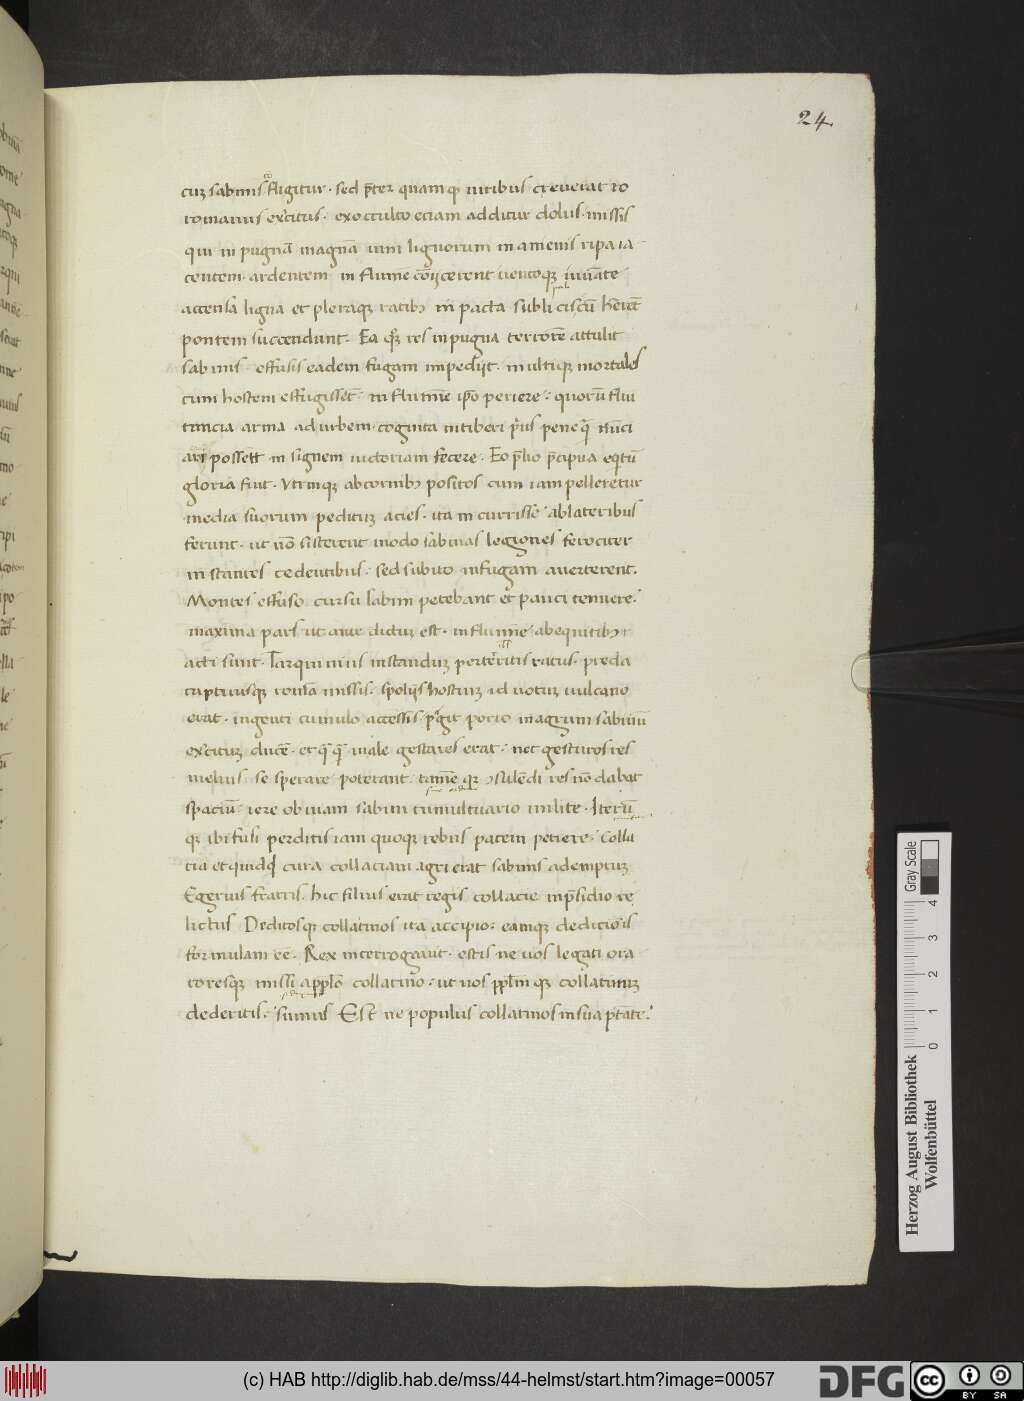 24
cuʒ sabinis ꝯfligitur · sed p̄ter quam ꝙ viribus creverat ro
romanus ex̄citus · ex occulto eciam additur dolus · missis
qui in pugnā magnā vim lignorum in anienis ripa ia
centem · ardentem in flumē cōijcerent ventoqꝫ iuuāte
accensa ligna et pleraqꝫ ratibꝫ in pacta subliciscū herēt
pontem succendunt · Ea qꝫ res in pugna terrorē attulit
sabinis · effusis eadem fugam impedijt · multiqꝫ mortales
cum hostem effugissēt · in flumīe ipo periere : quorū flui
tancia arma ad urbem · cognita in tiberi prius pene nūci
ari possett in signem victoriam fecere · Eo p̄lio p̄cipua eqtū
gloria fuit · Vtrinqꝫ ab cornibꝫ positos cum iam pelleretur
media suorum peditum acies · ita in currisse ab lateribus
ferunt · ut nō sisterent modo sabinas legiones ferociter
in stantes cedentibus · sed subito in fugam averterent.
Montes effuso cursu sabini petebant et pauci tenuere :
maxima pars ut ante dictuʒ est · in flumīe ab equitibꝫ
acti sunt · Tarquinius instanduʒ perterritis ratus · preda
captivisqꝫ romā missis : spolijs hostiuʒ id votuʒ vulcano
erat · ingenti cumulo accessis p̱git porro in agrum sabinū
ex̄cituʒ ducē · et qᷓqᷓ male gestares erat · nec gesturos res
melius se sperare poterant · tamē qꝫ ꝯsulēdi res nō dabat
spaciū · iere obviam sabini tumultuario milite · Iterū
qꝫ ibi fusi perditis iam quoqꝫ rebus pacem petiere · Colla
cia et quidqd cira collaciam agri erat sabinis ademptuʒ
Egerius fratris · hic filius erat regis collacie in p̄sidio re
lictus Deditosqꝫ collatinos ita accipio : eamqꝫ dedicōis
formulam eē · Rex interrogavit · estis ne vos legati ora
toresqꝫ missi a pplō collatino · ut vos pplm̄ qꝫ collatinuʒ
dederitis : sumus Est ne populus collatinos in sua p̄tate :
Herzog August Bibliothek
Wolfenbüttel
Gray Scale
0 1 2 3 4
(c) HAB http://diglib.hab.de/mss/44-helmst/start.htm?image=00057
DFG
cc BY SA